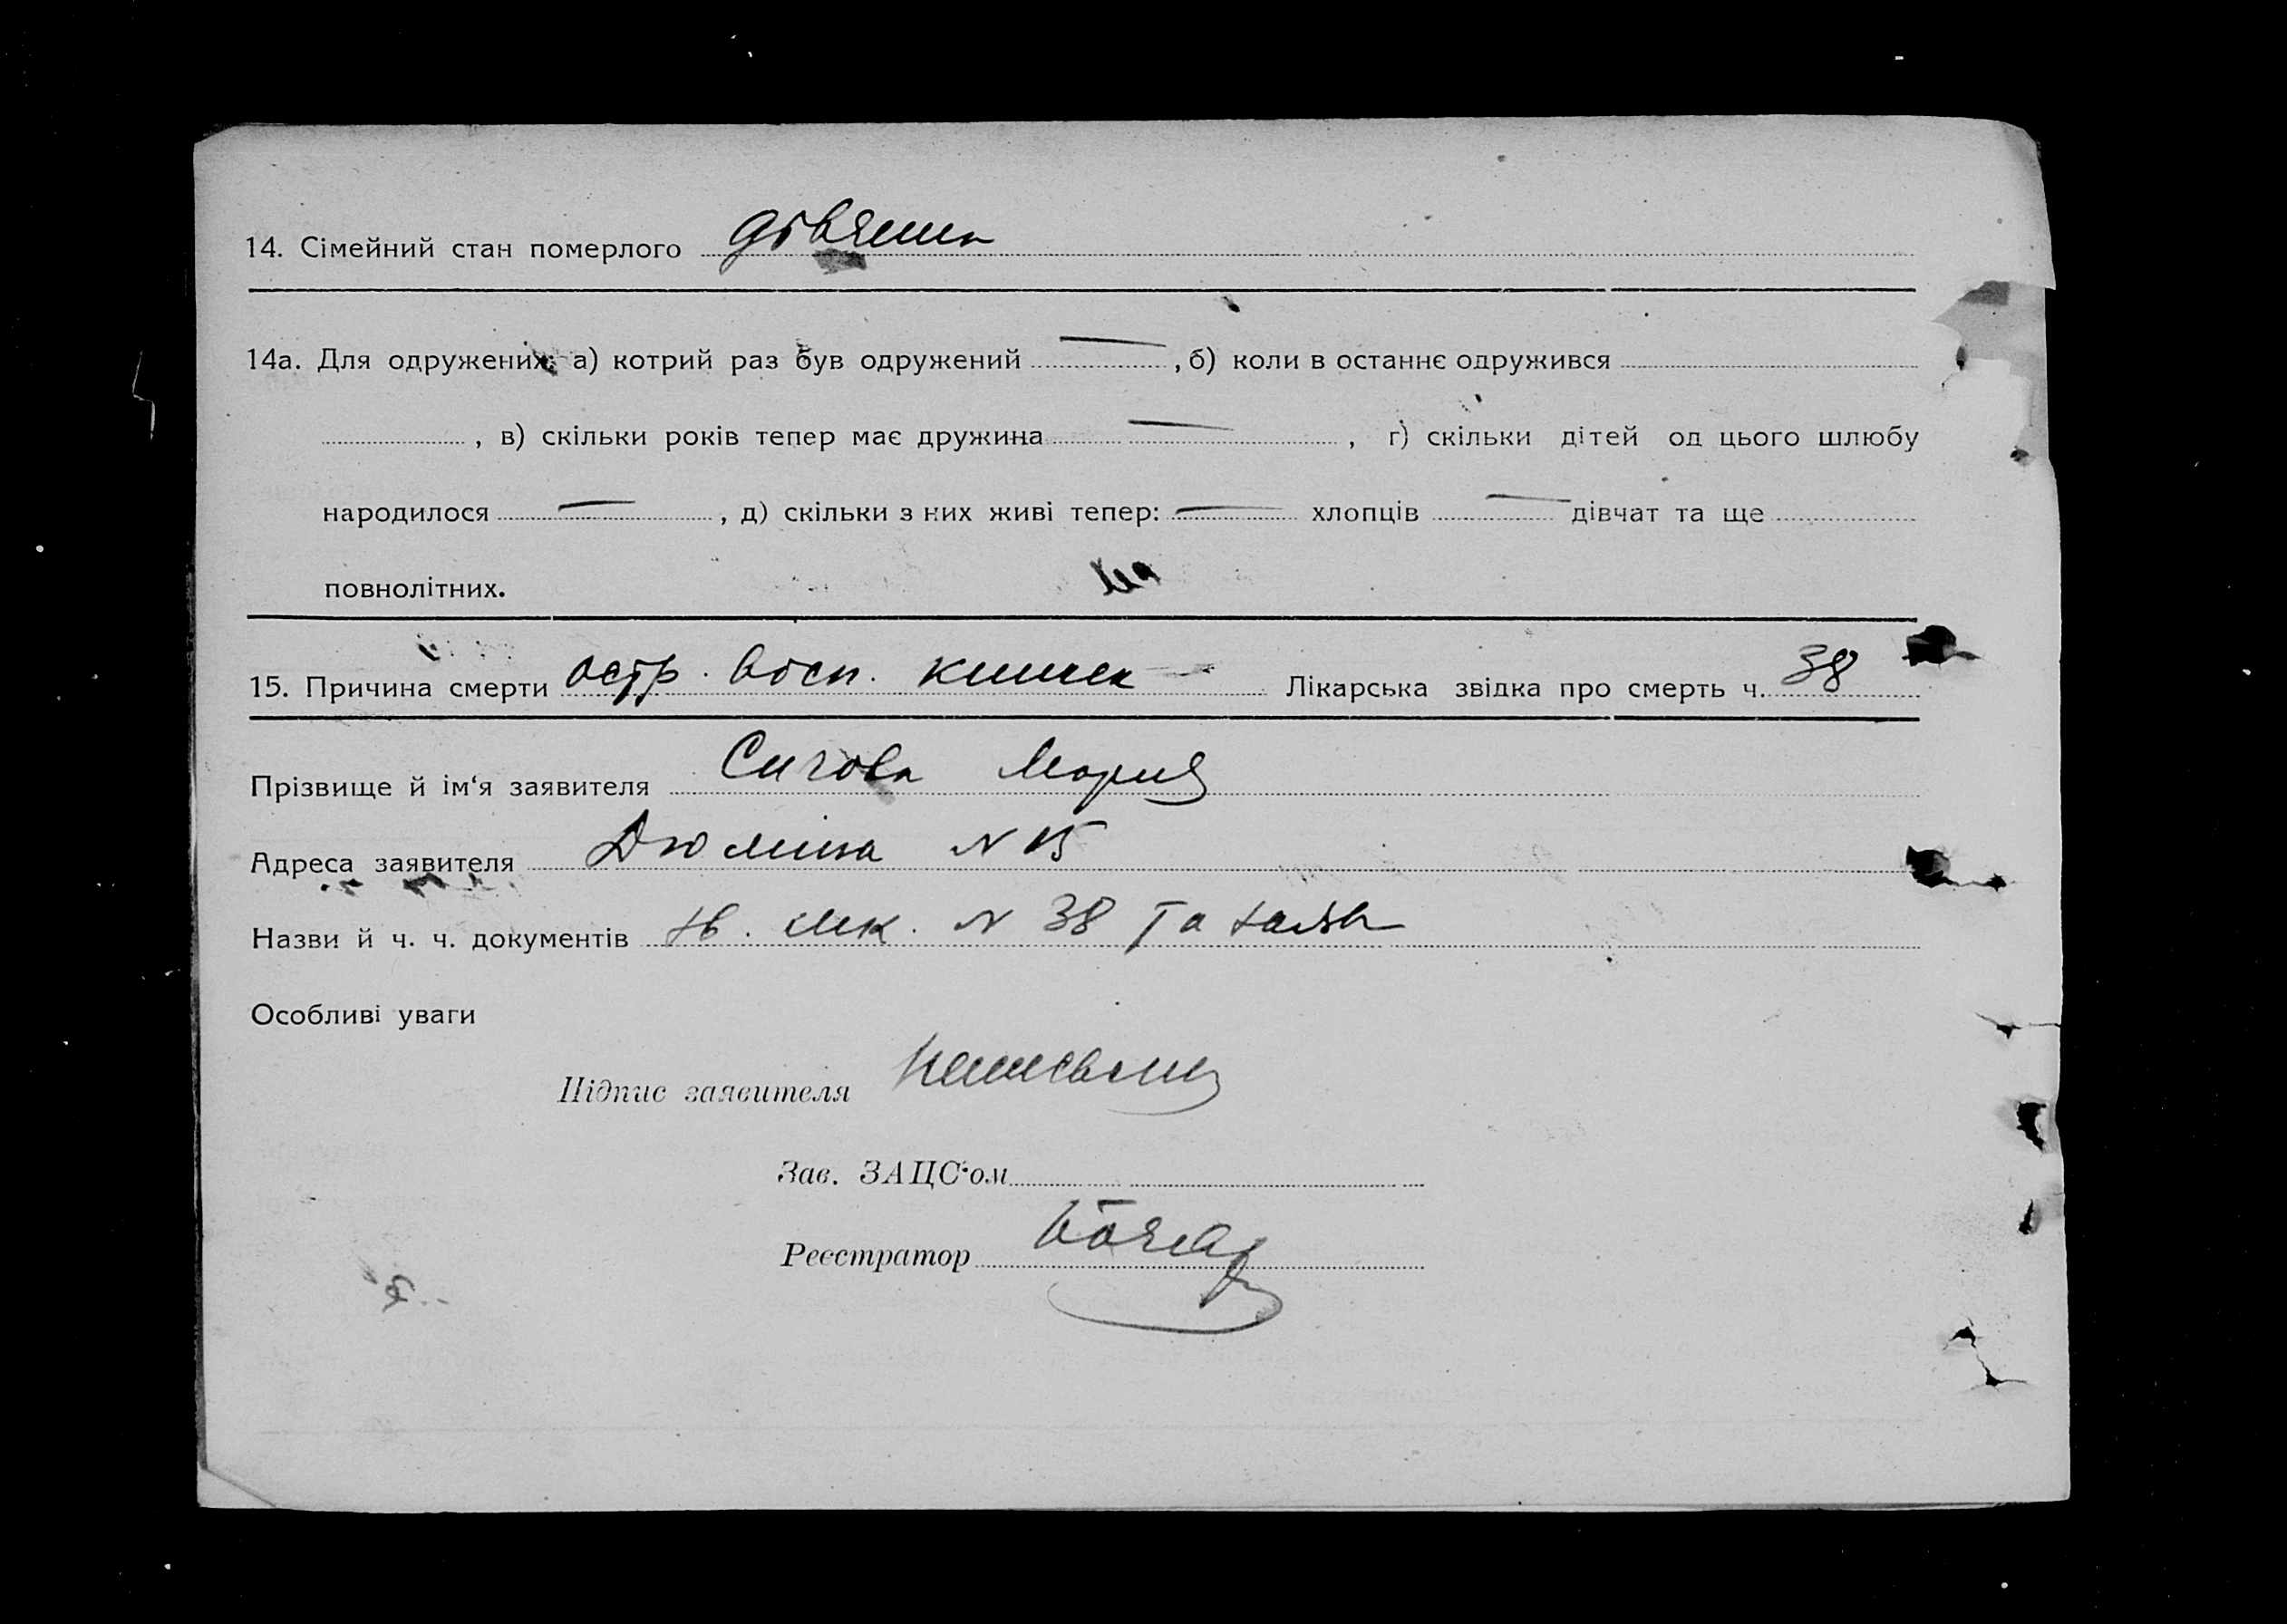 14. Сімейний стан померлого
14а. Для одружених: а) котрий раз був одружений —, б) коли в останнє одружився
, в) скільки років тепер має дружина —, г) скільки дітей од цього шлюбу
народилося —, д) скільки з них живі тепер: — хлопців — дівчат та ще
повнолітних.
15. Причина смерти остр. восп. кишек — Лікарська звідка про смерть ч. 38
Прізвище й ім‘я заявителя Сичова Мария
Адреса заявителя Дюміна N 15
Назви й ч. ч. документів N 38 та
Особливі уваги
Підпис заявителя
Зав. ЗАЦС‘ом
Реєстратор